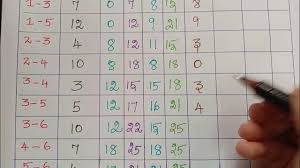 1-3 7 0 7 8 15 8
1-5 12 0 12 9 21 9
2-3 4 8 12 11 15 3
2-4 10 8 18 8 18 0
3-4 3 12 15 15 18 3
3-5 5 12 17 16 21 4
3-6 10 12 22 15 25
4-6 7 18 25 18 25
5-6